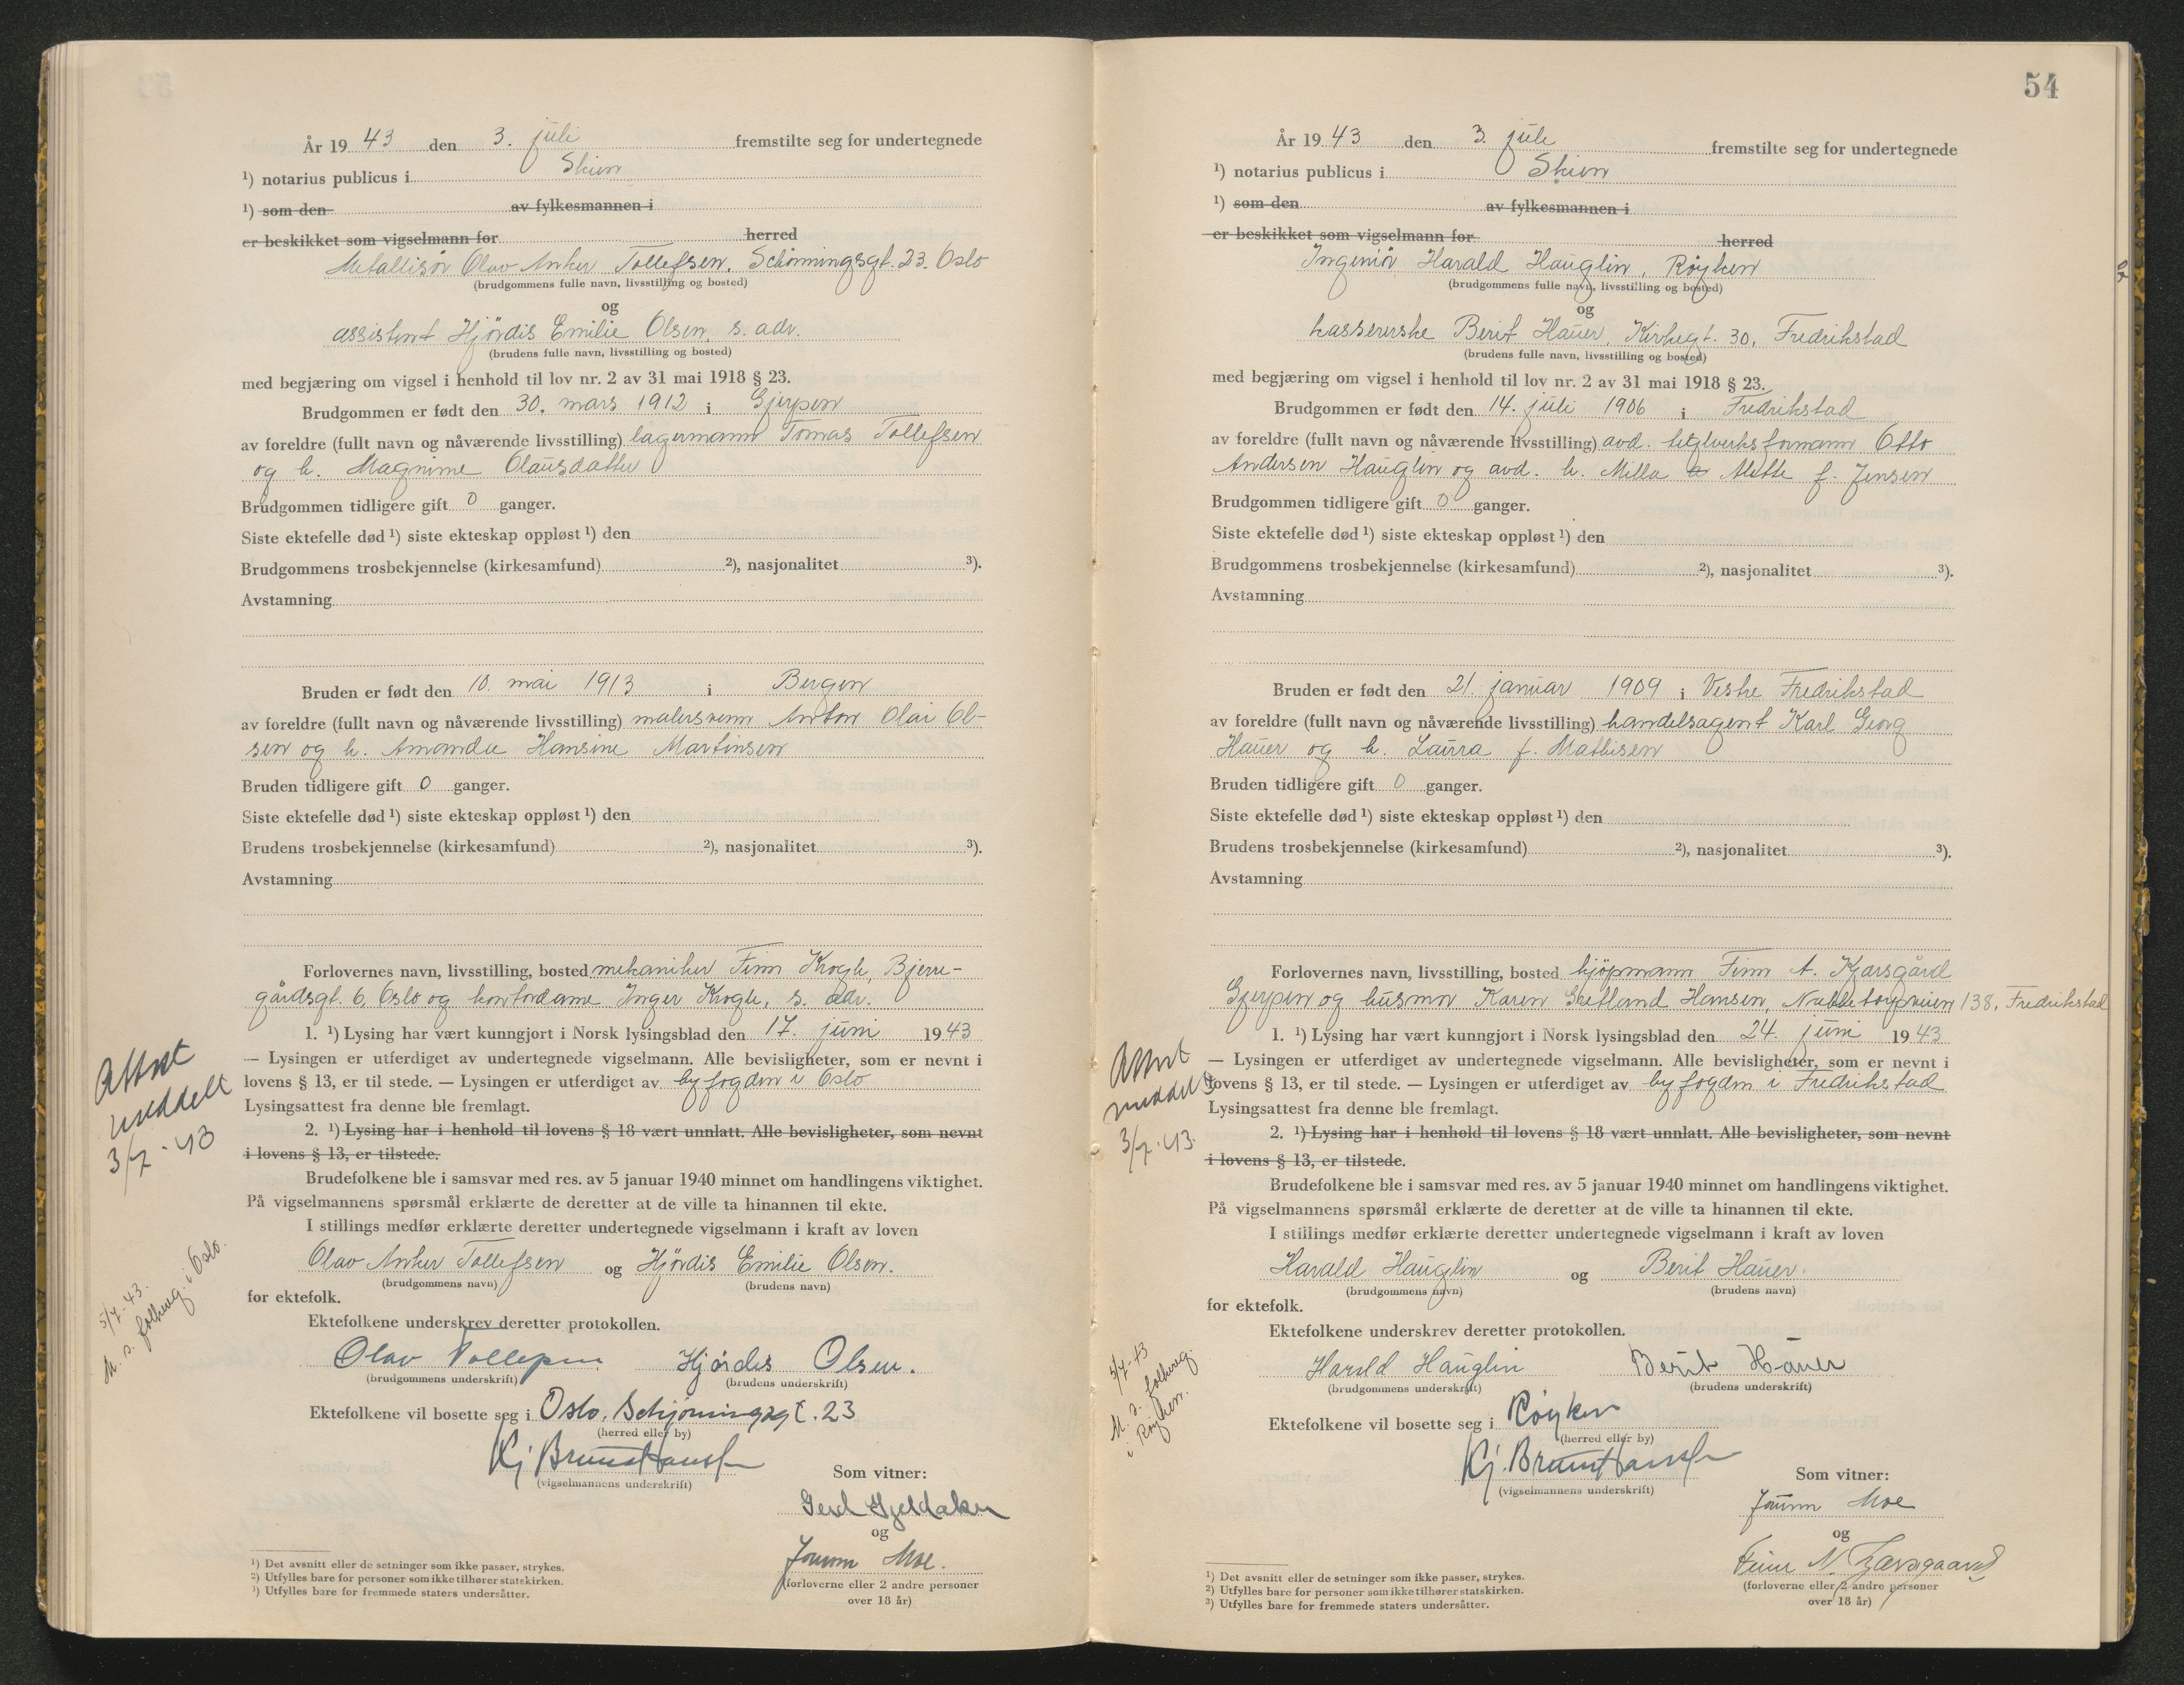 År 1943 den 3. juli fremstilte seg for undertegnede
¹) notarius publicus i Skien
¹) som den av fylkesmannen i
er beskikket som vigselmann for herred
Metallisør Olav Anker Tollefsen, Schønningsgt. 23. Oslo
(brudgommens fulle navn, livsstilling og bosted)
og
assistent Hjördis Emilie Olsen, s. adr.
(brudens fulle navn, livsstilling og bosted)
med begjæring om vigsel i henhold til lov nr. 2 av 31 mai 1918 § 23.
Brudgommen er født den 30. mars 1912 i Gjerpen
av foreldre (fullt navn og nåværende livsstilling) lagermann Tomas Tollefsen
og h. Magnine Olausdatter
Brudgommen tidligere gift 0 ganger.
Siste ektefelle død ¹) siste ekteskap oppløst ¹) den
Brudgommens trosbekjennelse (kirkesamfund) ²), nasjonalitet ³).
Avstamning
Bruden er født den 10. mai 1913 i Bergen
av foreldre (fullt navn og nåværende livsstilling) malersvenn Anton Olai Ol-
sen og h. Amanda Hansine Martinsen
Bruden tidligere gift 0 ganger.
Siste ektefelle død ¹) siste ekteskap oppløst ¹) den
Brudens trosbekjennelse (kirkesamfund) ²), nasjonalitet ³).
Avstamning
Forlovernes navn, livsstilling, bosted mekaniker Finn Krogh, Bjerre-
gårdsgt. 6, Oslo og kontordame Inger Krogh, s. adr.
1. ¹) Lysing har vært kunngjort i Norsk lysingsblad den 17. juni 1943
— Lysingen er utferdiget av undertegnede vigselmann. Alle bevisligheter, som er nevnt i
lovens § 13, er til stede. — Lysingen er utferdiget av byfogden i Oslo
Lysingsattest fra denne ble fremlagt.
2. ¹) Lysing har i henhold til lovens § 18 vært unnlatt. Alle bevisligheter, som nevnt
i lovens § 13, er tilstede.
Brudefolkene ble i samsvar med res. av 5 januar 1940 minnet om handlingens viktighet.
På vigselmannens spørsmål erklærte de deretter at de ville ta hinannen til ekte.
I stillings medfør erklærte deretter undertegnede vigselmann i kraft av loven
Olav Anker Tollefsen og Hjördis Emilie Olsen.
(brudgommens navn) (brudens navn)
for ektefolk.
Ektefolkene underskrev deretter protokollen.
Olav Tollefsen Hjørdis Olsen.
(brudgommens underskrift) (brudens underskrift)
Ektefolkene vil bosette seg i Oslo, Schjønningsgt. 23
(herred eller by)
Kj Brunn Hansen
(vigselmannens underskrift)
Som vitner:
Gerd Gjeldaker
og
Jorunn Moe.
(forloverne eller 2 andre personer
over 18 år)
¹) Det avsnitt eller de setninger som ikke passer, strykes.
²) Utfylles bare for personer som ikke tilhører statskirken.
³) Utfylles bare for fremmede staters undersåtter.
Attest
meddelt
3/7-43
5/7-43.
M. s. folkereg. i Oslo.
54
År 1943 den 3. juli fremstilte seg for undertegnede
¹) notarius publicus i Skien
¹) som den av fylkesmannen i
er beskikket som vigselmann for herred
Ingeniör Harald Hauglin, Röyken
(brudgommens fulle navn, livsstilling og bosted)
og
kassererske Berit Hauer, Kirkegt. 30, Fredrikstad
(brudens fulle navn, livsstilling og bosted)
med begjæring om vigsel i henhold til lov nr. 2 av 31 mai 1918 § 23.
Brudgommen er født den 14. juli 1906 i Fredrikstad
av foreldre (fullt navn og nåværende livsstilling) avd. teglverksformann Otto
Andersen Hauglin og avd. h. Milla Alette f. Jensen
Brudgommen tidligere gift 0 ganger.
Siste ektefelle død ¹) siste ekteskap oppløst ¹) den
Brudgommens trosbekjennelse (kirkesamfund) ²), nasjonalitet ³).
Avstamning
Bruden er født den 21. januar 1909 i Vestre Fredrikstad
av foreldre (fullt navn og nåværende livsstilling) handelsagent Karl Georg
Hauer og h. Laura f. Mathisen
Bruden tidligere gift 0 ganger.
Siste ektefelle død ¹) siste ekteskap oppløst ¹) den
Brudens trosbekjennelse (kirkesamfund) ²), nasjonalitet ³).
Avstamning
Forlovernes navn, livsstilling, bosted kjöpmann Finn A. Kjærsgård
Gjerpen og husmor Karen Grefland Hansen, 138, Fredrikstad
1. ¹) Lysing har vært kunngjort i Norsk lysingsblad den 24. juni 1943
— Lysingen er utferdiget av undertegnede vigselmann. Alle bevisligheter, som er nevnt i
lovens § 13, er til stede. — Lysingen er utferdiget av byfogden i Fredrikstad
Lysingsattest fra denne ble fremlagt.
2. ¹) Lysing har i henhold til lovens § 18 vært unnlatt. Alle bevisligheter, som nevnt
i lovens § 13, er tilstede.
Brudefolkene ble i samsvar med res. av 5 januar 1940 minnet om handlingens viktighet.
På vigselmannens spørsmål erklærte de deretter at de ville ta hinannen til ekte.
I stillings medfør erklærte deretter undertegnede vigselmann i kraft av loven
Harald Hauglin og Berit Hauer.
(brudgommens navn) (brudens navn)
for ektefolk.
Ektefolkene underskrev deretter protokollen.
Harald Hauglin Berit Hauer
(brudgommens underskrift) (brudens underskrift)
Ektefolkene vil bosette seg i Röyken
(herred eller by)
Kj. Brunn Hansen
(vigselmannens underskrift)
Som vitner:
Jorunn Moe
og
Finn N. Kjærsgaard
(forloverne eller 2 andre personer
over 18 år)
¹) Det avsnitt eller de setninger som ikke passer, strykes.
²) Utfylles bare for personer som ikke tilhører statskirken.
³) Utfylles bare for fremmede staters undersåtter.
Attest
meddelt
3/7-43.
5/7-43
M. s. folkereg.
i Röyken.